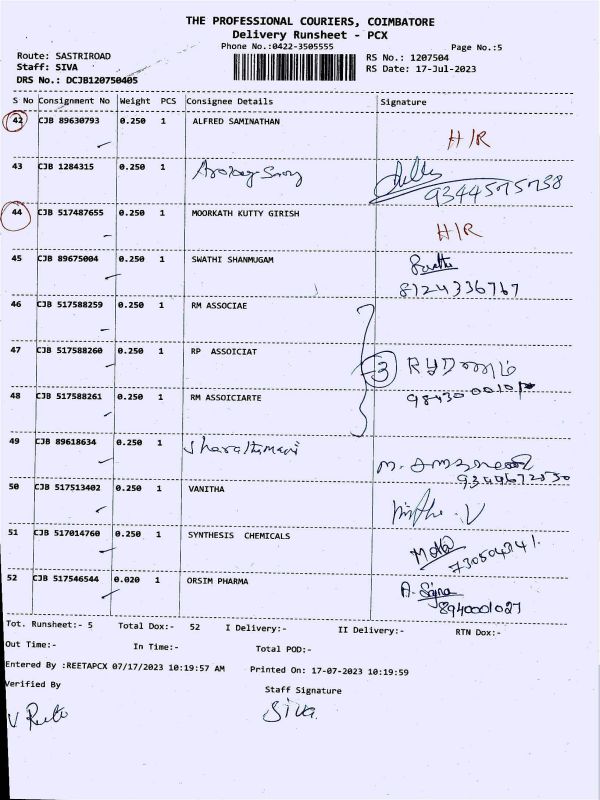 THE PROFESSIONAL COURIERS, COIMBATORE
Delivery Runsheet - PCX
Phone No.:0422-3505555 Page No.:5
Route: SASTRIROAD RS No.: 1207504
Staff: SIVA RS Date: 17-Jul-2023
DRS No.: DCJB120750405
S No Consignment No Weight PCS Consignee Details Signature
42 CJB 89630793 0.250 1 ALFRED SAMINATHAN
H/R
43 CJB 1284315 0.250 1
9344575758
44 CJB 517487655 0.250 1 MOORKATH KUTTY GIRISH
H/R
45 CJB 89675004 0.250 1 SWATHI SHANMUGAM
8124336767
46 CJB 517588259 0.250 1 RM ASSOCIAE
47 CJB 517588260 0.250 1 RP ASSOICIAT
3
48 CJB 517588261 0.250 1 RM ASSOICIARTE
49 CJB 89618634 0.250 1
50 CJB 517513402 0.250 1 VANITHA
51 CJB 517014760 0.250 1 SYNTHESIS CHEMICALS
52 CJB 517546544 0.020 1 ORSIM PHARMA
8940001027
Tot. Runsheet:- 5 Total Dox:- 52 I Delivery:- II Delivery:- RTN Dox:-
Out Time:- In Time:- Total POD:-
Entered By :REETAPCX 07/17/2023 10:19:57 AM Printed On: 17-07-2023 10:19:59
Verified By Staff Signature
Siva.